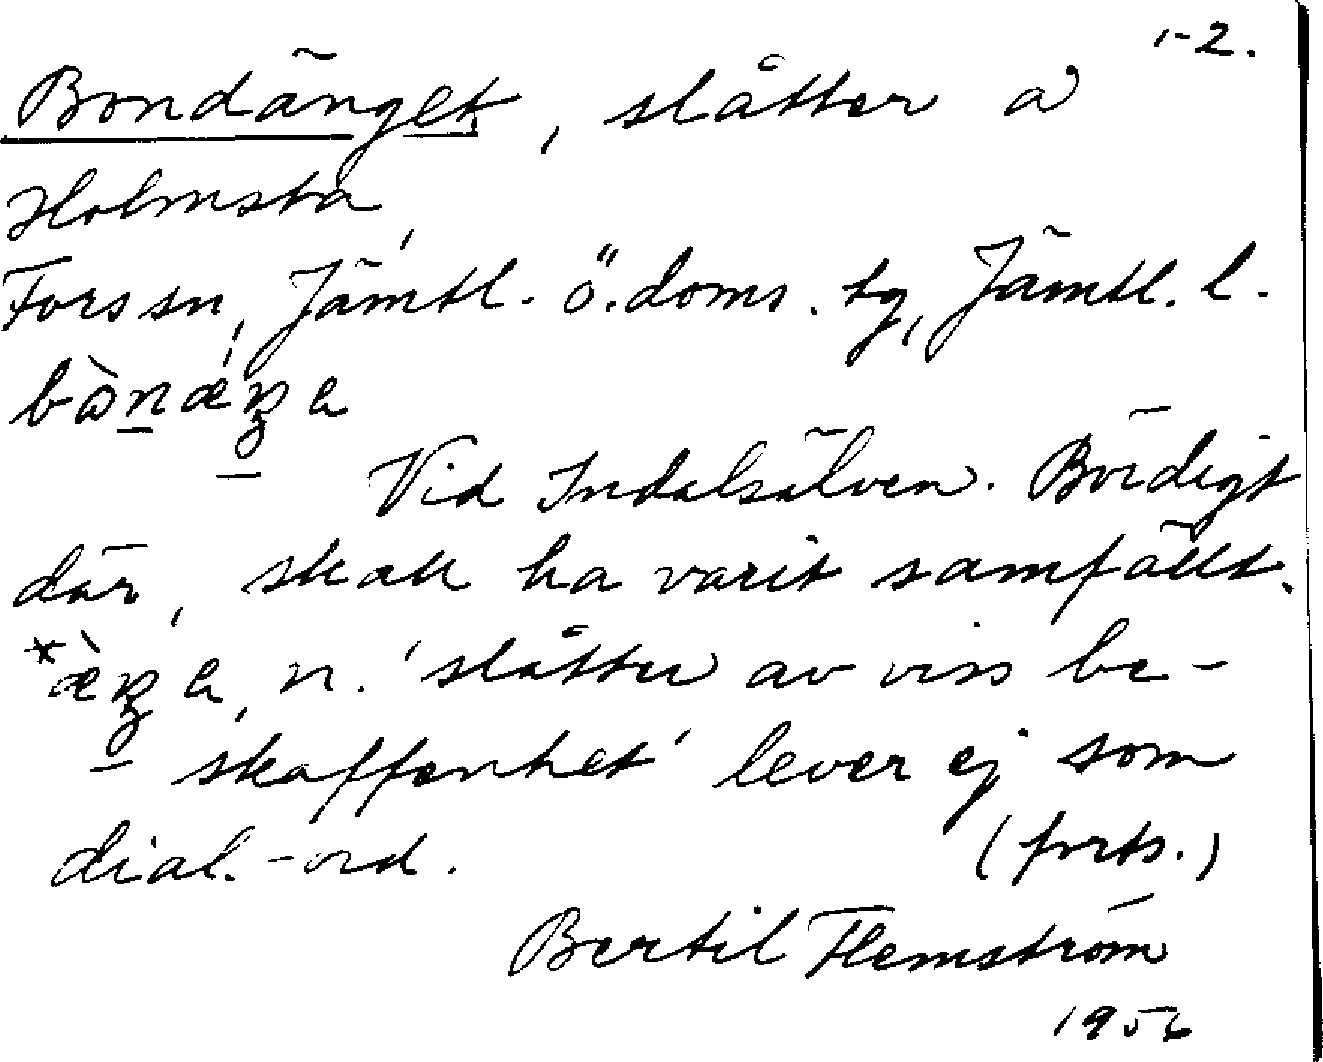 1-2.
Bondänget, slåtter å
Holmsta,
Fors sn, Jämtl. ö. doms. tg, Jämtl. l.
Vid Indalsälven. Bördigt
där, skall ha varit samfällt.
n. 'slåtter av viss be-
skaffenhet' lever ej som
dial.-ord. (forts.)
Bertil Flemström
1956